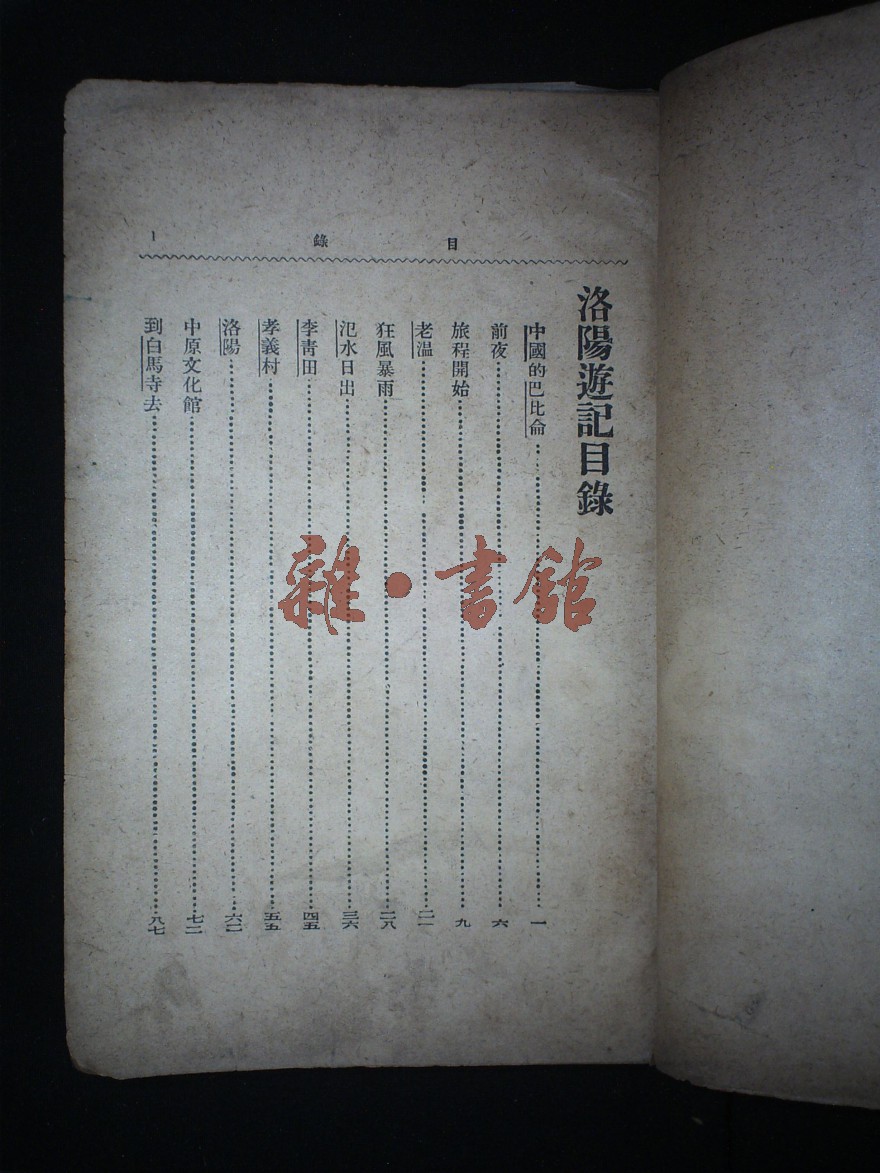 目錄
1
洛陽遊記目錄
中國的巴比倫……一
前夜……六
旅程開始……九
老温……二一
狂風暴雨……二八
氾水日出……三六
李青田……四五
孝義村……五五
洛陽……六二
中原文化館……七二
到白馬寺去……八七
雜·書館